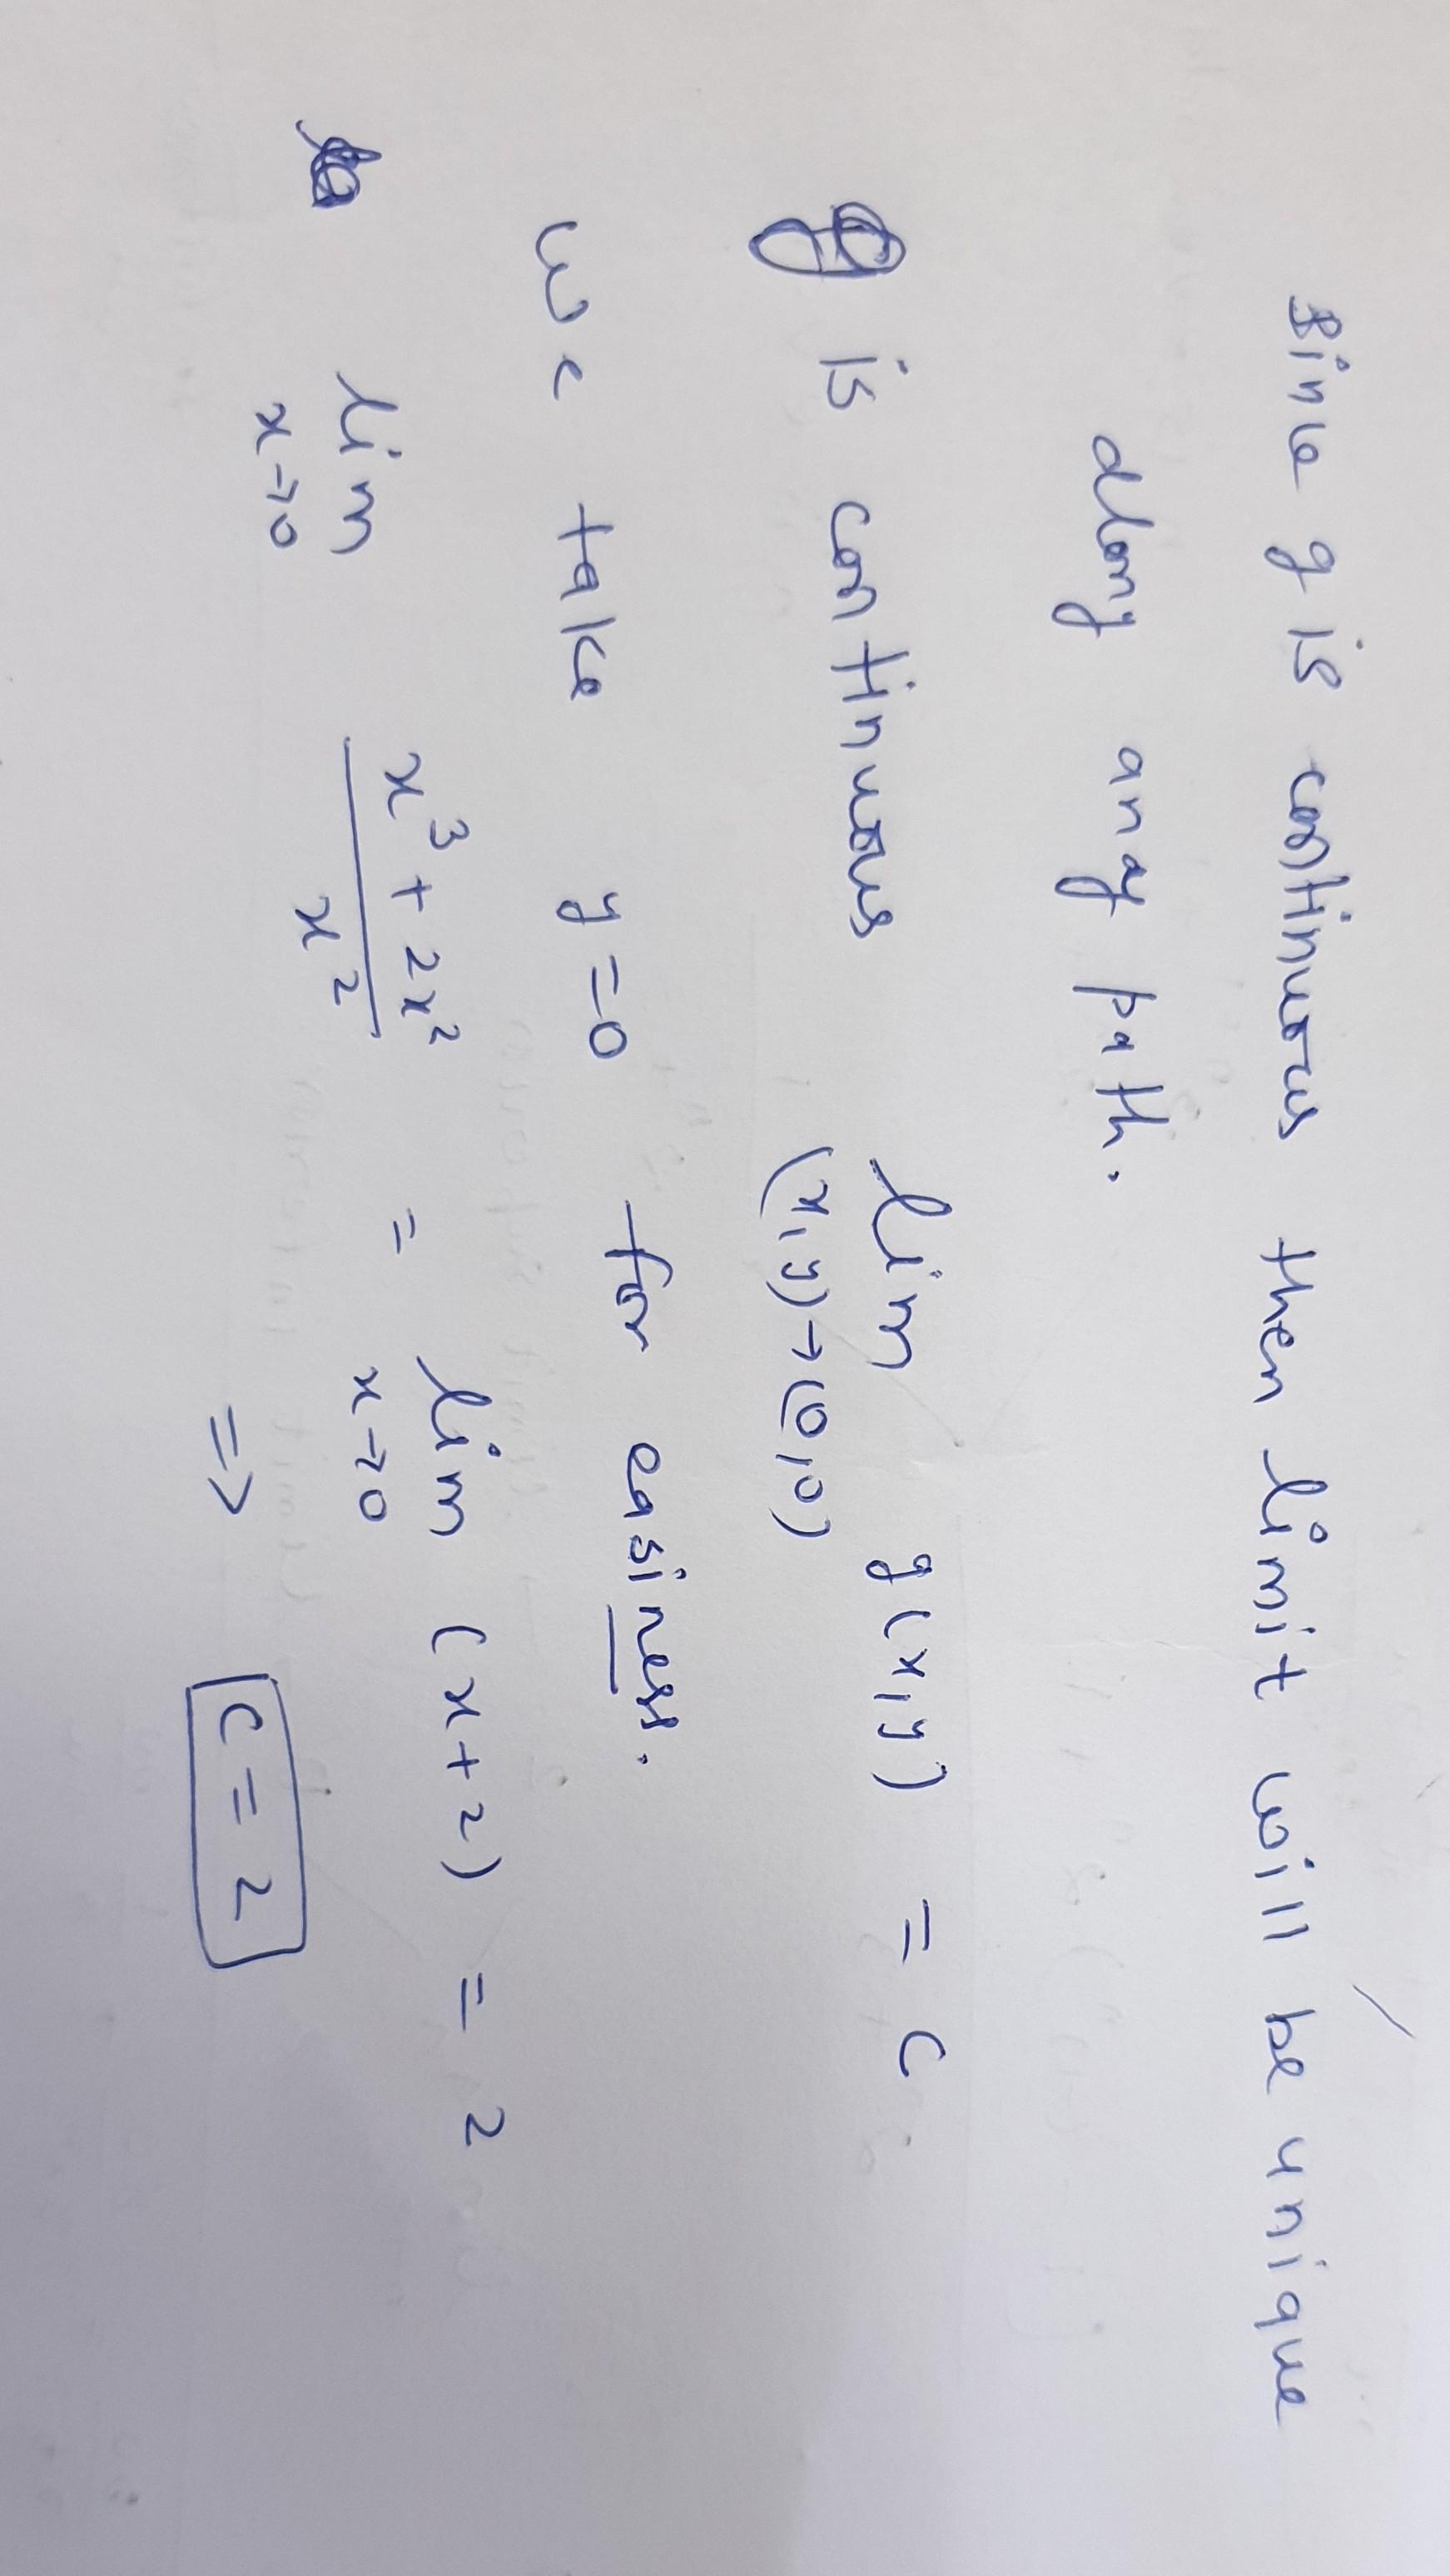 Since g is continuous then limit will be unique
along any path.
g is continuous lim g(x,y) = c
(x,y)→(0,0)
We take y=0 for easiness.
lim x³+2x² / x² = lim (x+2) = 2
x→0 x→0
⇒ c=2